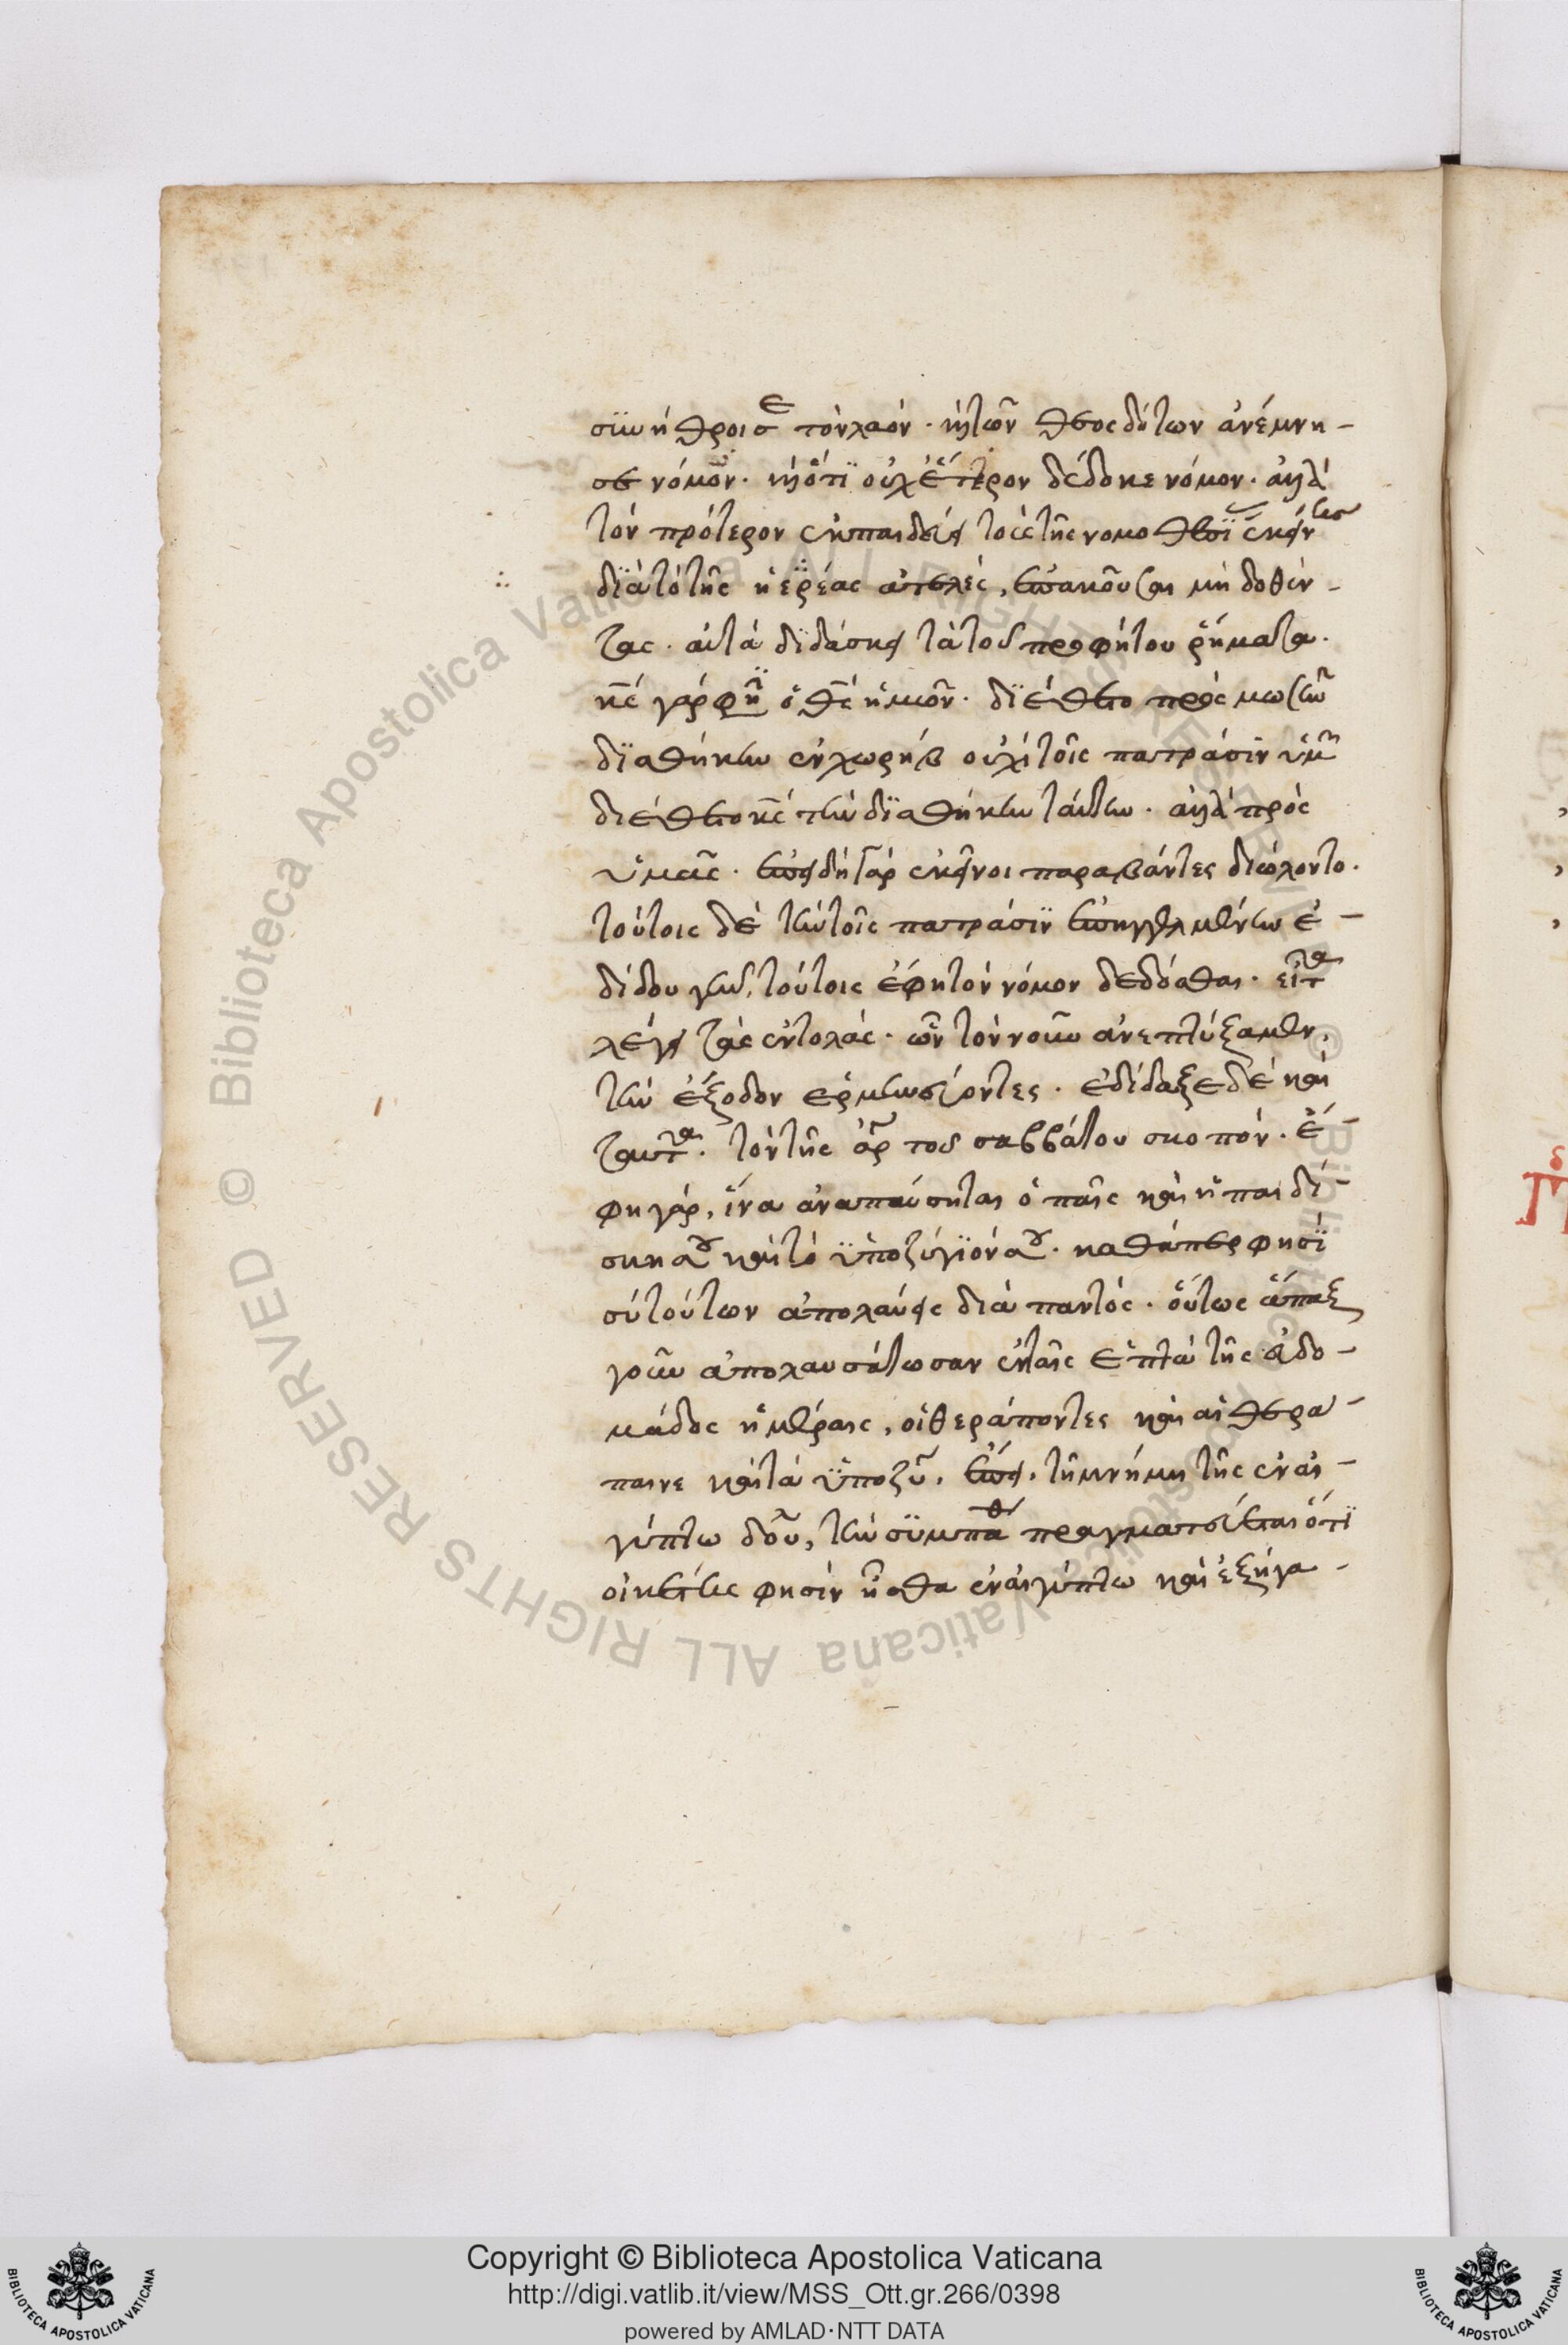 σϊων ἤθροισε τὸν λαὸν· καὶ τῶν θεοσδότων ἀνέμνη-
σε νόμων. καὶ ὅτϊ οὐχ ἕτερον δέδωκε νόμον. ἀλλὰ
τὸν πρότερον ἐκπαιδεύει τοὺς τῆς νομοθεσϊ ἐκείν
δϊὰ τὸ τῆς ἡ ἀτελὲς, ἐπακοῦσαι μὴ δοθέν-
τας. αὐτὰ δϊδάσκει τὰ τοῦ προφήτου ῥήματα.
κς γάρ φη ὁ θς ἡμῶν. δϊέθετο πρὸς μωσῆν
δϊαθήκην ἐν χωρήβ οὐχὶ τοῖς πατράσϊν ὑμ
διέθετο κς τὴν δϊαθήκην ταύτην. ἀλλὰ πρὸς
ὑμᾶς. ἐπειδὴ γὰρ ἐκεῖνοι παραβάντες διώλοντο.
τούτοις δὲ τὴν τοῖς πατράσϊν ἐπηγγελμένην ἐ-
δίδου γῆν, τούτοις ἔφη τὸν νόμον δεδόσθαι. εἶτα
λέγει τὰς ἐντολὰς. ὧν τὸν νοῦν ἀνεπτύξαμεν,
τὴν ἔξοδον ἑρμηνεύοντες. ἐδίδαξε δὲ καὶ
ταῦτα. τὸν τῆς ἀρ τοῦ σαββάτου σκοπὸν. ἔ-
φη γάρ, ἵνα ἀναπαύσηται ὁ παῖς καὶ ἡ παιδί-
σκη σου καὶ τὸ ὑποζύγϊόν σου. καθάπερ φησϊ
σὺ τούτων ἀπολαύεις διὰ παντὸς. οὕτως ἅπαξ
γοῦν ἀπολαυσάτωσαν ἐν ταῖς ἑπτὰ τῆς ἑβδο-
μάδος ἡμέραις, οἱ θεράποντες καὶ αἱ θερά-
παινε καὶ τὰ ὑποζυ. ἔπει. τῇ μνήμη τῆς ἐν αἰ-
γύπτω δου, τὴν συμπαθ πραγματεύεται ὅτϊ
οἰκέτης φησὶν ἦσθα ἐν αἰγύπτω καὶ ἐξήγα-
Copyright © Biblioteca Apostolica Vaticana
http://digi.vatlib.it/view/MSS_Ott.gr.266/0398
powered by AMLAD·NTT DATA